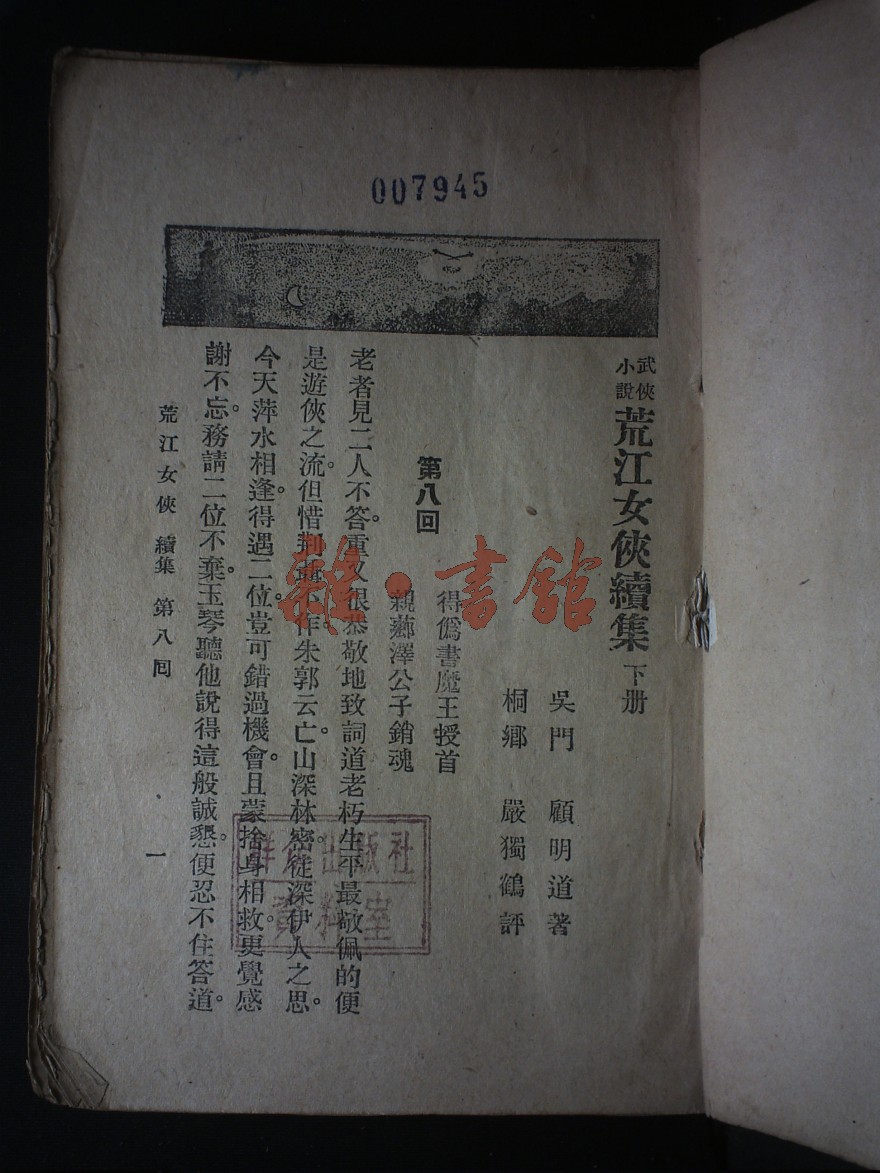 007945
武俠小說 荒江女俠續集 下册
吳門 顧明道著
桐鄉 嚴獨鶴評
第八回
得僞書魔王授首
親薌澤公子銷魂
老者見二人不答。重又很恭敬地致詞道老朽生平最敬佩的便
是遊俠之流。但惜荆聶不作。朱郭云亡。山深林密。徒深伊人之思。
今天萍水相逢。得遇二位。豈可錯過機會。且蒙捨身相救。更覺感
謝不忘。務請二位不棄。玉琴聽他說得這般誠懇。便忍不住答道。
荒江女俠 續集 第八回
一
雜·書館
群众出版社
資料室